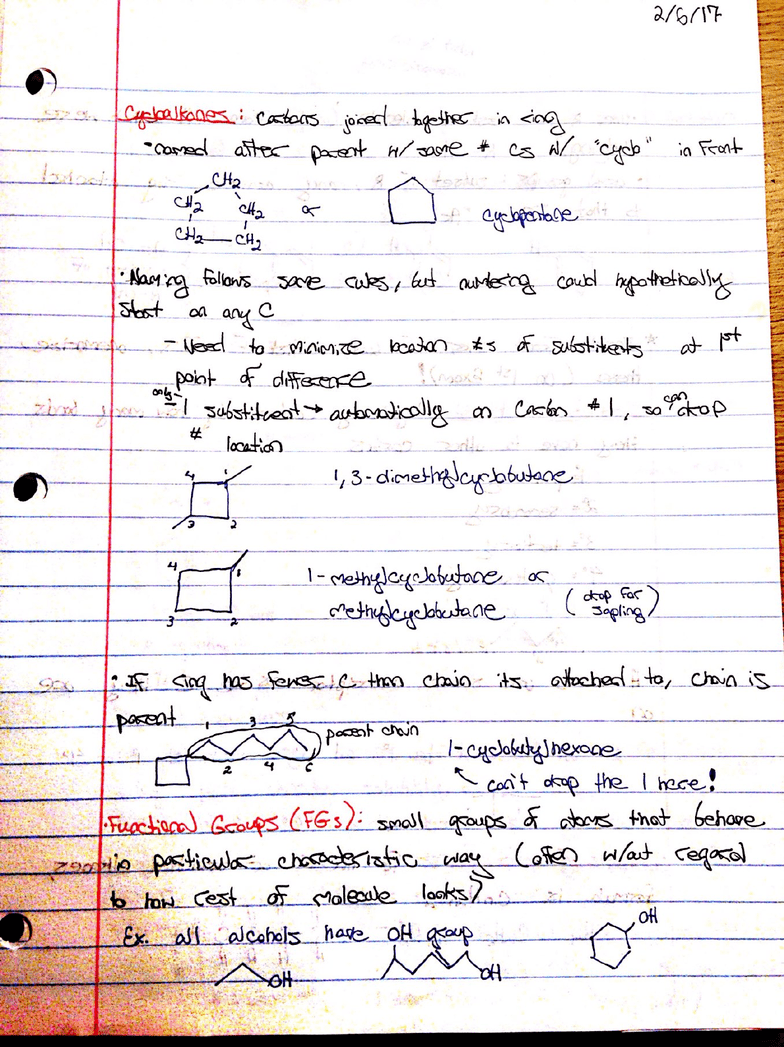 2/6/17
Cycloalkanes: Carbons joined together in ring
- named after parent w/ same # Cs w/ "cyclo" in front
CH2
CH2 CH2 or cyclopentane
CH2 CH2
· Naming follows same rules, but numbering could hypothetically
start on any C
- Need to minimize location #s of substituents at 1st
point of difference
only
- 1 substituent → automatically on Carbon #1, so can drop
# location
4 1 1,3-dimethylcyclobutane
3 2
4 1 1-methylcyclobutane or
methylcyclobutane (drop for Sapling)
3 2
· If ring has fewer C than chain its attached to, chain is
parent 1 3 5 parent chain
1-cyclobutylhexane
2 4 6
can't drop the 1 here!
· Functional Groups (FGs): small groups of atoms that behave
in particular characteristic way (often w/out regard
to how rest of molecule looks)
Ex. all alcohols have OH group OH
OH OH